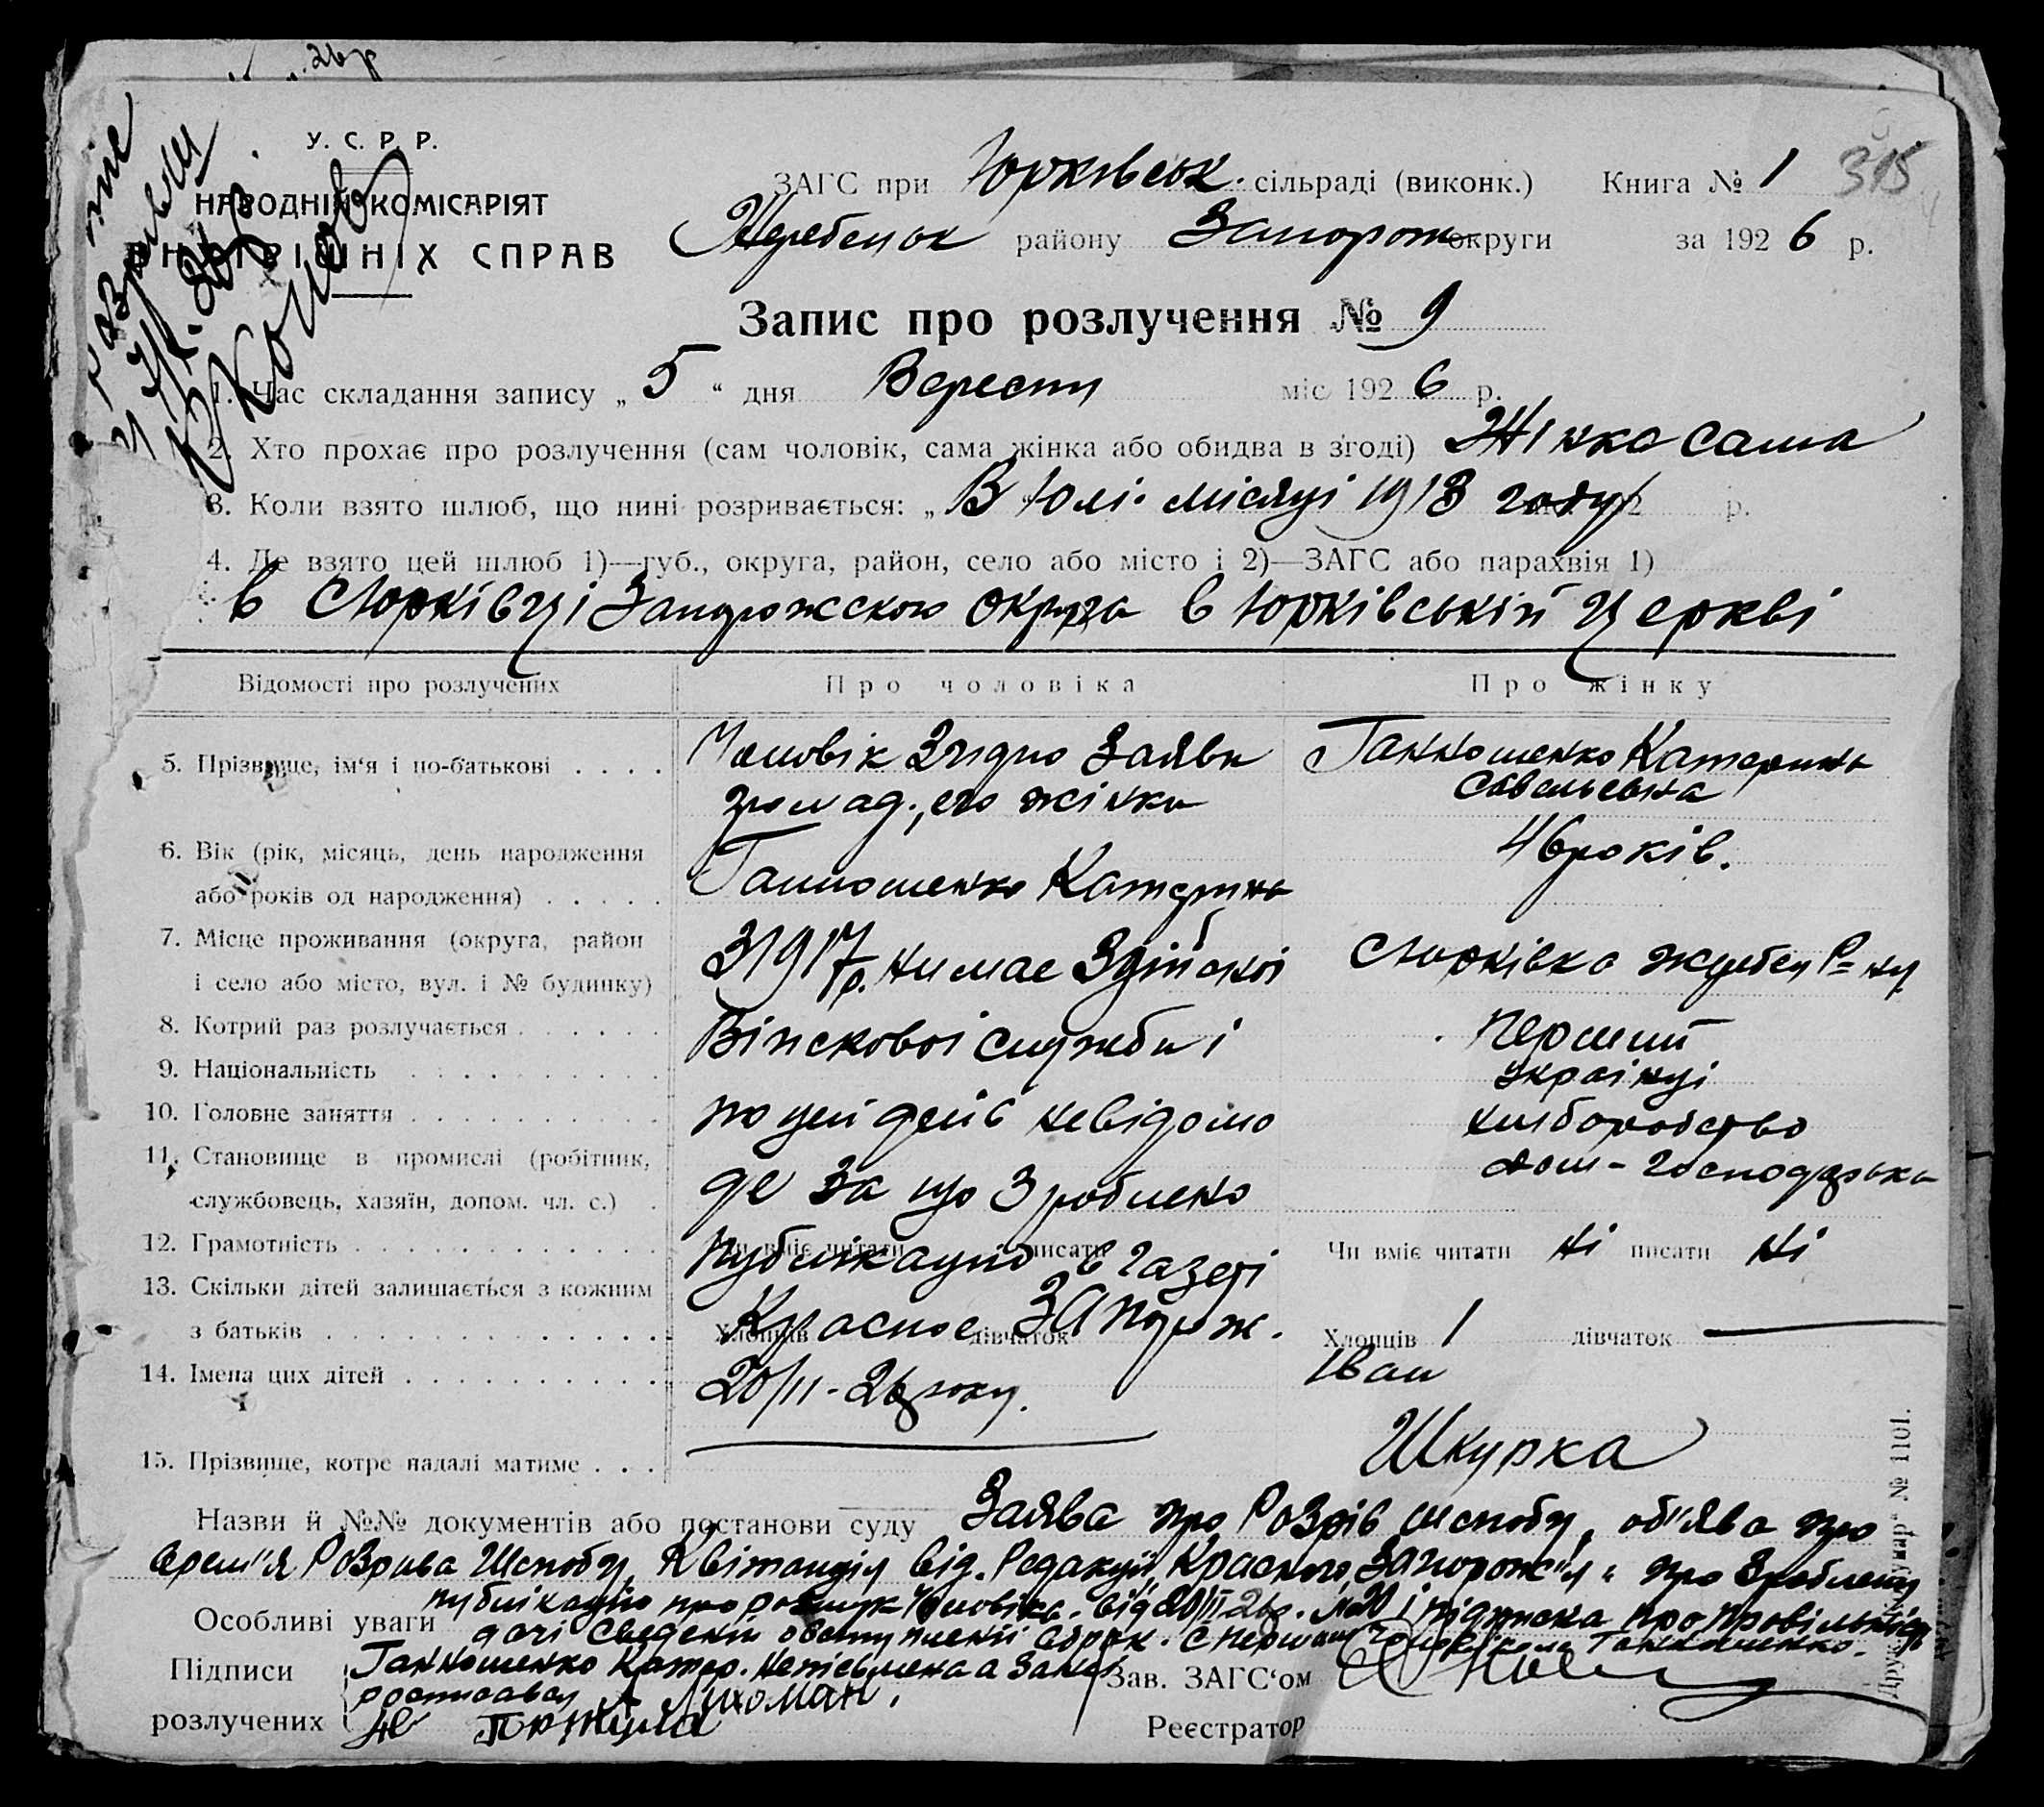 26р
У. С. Р. Р.
НАРОДНІЙ КОМІСАРІЯТ
СПРАВ
ЗАГС при Юрківськ. сільраді (виконк.) Книга № 1 315
Жеребецьк району Запорож округи за 1926 р.
Запис про розлучення № 9
1. Час складання запису „ 5 “ дня Вересня міс. 1926 р.
2. Хто прохає про розлучення (сам чоловік, сама жінка або обидва в згоді) Жінка сама
3. Коли взято шлюб, що нині розривається: „ В Юлі. місяці 1918 году р.
4. Де взято цей шлюб 1)—губ., округа, район, село або місто і 2)—ЗАГС або парахвія 1)
в с Юрківці Запорожскою округа в Юрківській церкві
Відомості про розлучених Про чоловіка Про жінку
5. Прізвище, ім‘я і по-батькові . . . . Чоловік згідно заяви Ганношенко Катерина
громад., его жінки Савельевна
6. Вік (рік, місяць, день народження 46 років.
або років од народження) . . . . . Ганношенко Катерина
7. Місце проживання (округа, район З 1917 р. нимае з дійскої с Юрківка Жеребец Р=ну
і село або місто, вул. і № будинку)
8. Котрий раз розлучається . . . . . . Війсковоі служби і перший
9. Національність . . . . . . . . . . україньці
10. Головне заняття . . . . . . . . . . по цей день невідомо хлібородство
11. Становище в промислі (робітник, дом-господарька
службовець, хазяїн, допом. чл. с.) . де за що зроблено
12. Грамотність . . . . . . . . . . . . Чи вміє читати писати публікацію в газеті Чи вміє читати ні писати ні
13. Скільки дітей залишається з кожним
з батьків . . . . . . . . . . . . . . Хлопців дівчаток Красное Запорож. Хлопців 1 дівчаток —
14. Імена цих дітей . . . . . . . . . . . 20/II-26 року. Іван
15. Прізвище, котре надалі матиме . . . Шкурка
Назви й №№ документів або постанови суду Заява про Розрів шлюбу, об'ява про
врем'я Розрива Шлюбу, Квітанція від. Редакціи „Красного Запорож'я“ про зроблену
публікацію про розшук чоловіка. від 20/II 26р. № 20 і підписка про правільність
Особливі уваги дачі сведеній о вступленіі в брак. с першим чоловіком Ганношенко.
Підписи Ганношенко Катер. неписьмена а за неі
росписавсь А Лихоман.
розлучених
Зав. ЗАГС‘ом
Реєстратор
№ 1101.